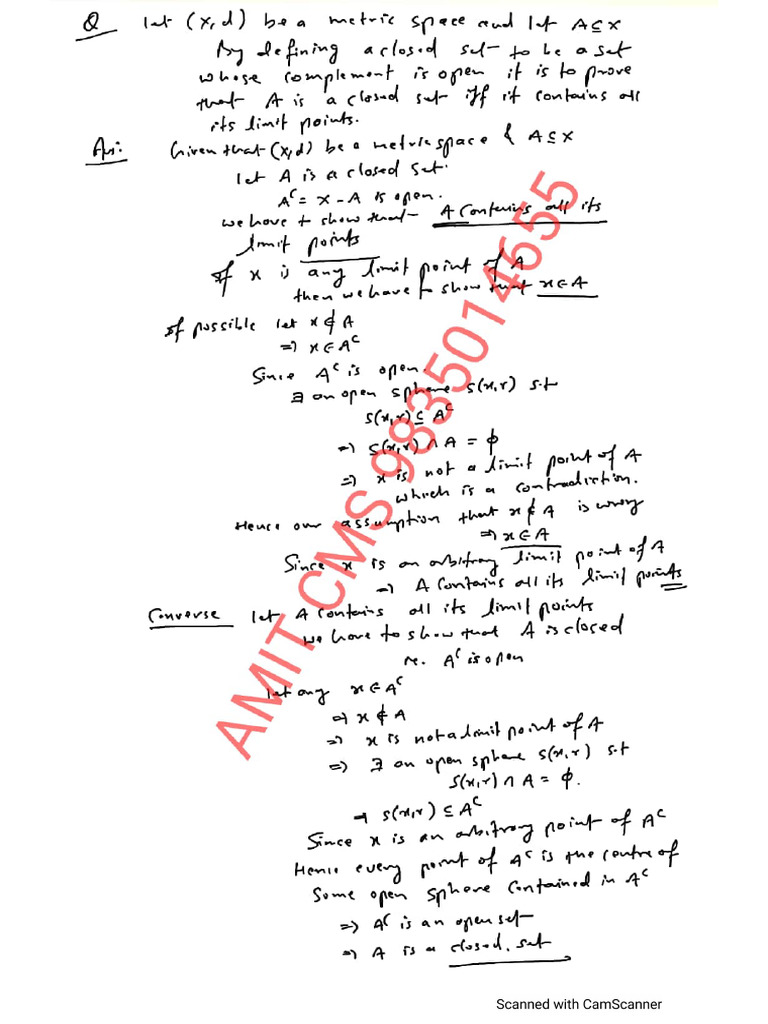 Q let (x,d) be a metric space and let A⊆X
By defining a closed set to be a set
whose complement is open it is to prove
that A is a closed set iff it contains all
its limit points.
An: Given that (x,d) be a metric space & A⊆X
let A is a closed set.
Aᶜ = X-A is open.
we have to show that A contains all its
limit points
If x is any limit point of A
then we have to show that x∈A
If possible let x∉A
⇒ x∈Aᶜ
Since Aᶜ is open.
∃ an open sphere S(x,r) s.t
S(x,r)⊆Aᶜ
⇒ S(x,r)∩A=ϕ
⇒ x is not a limit point of A
which is a contradiction.
Hence our assumption that x∉A is wrong
⇒ x∈A
Since x is an arbitrary limit point of A
⇒ A contains all its limit points
Converse let A contains all its limit points
we have to show that A is closed
ie. Aᶜ is open
let any x∈Aᶜ
⇒ x∉A
⇒ x is not a limit point of A
⇒ ∃ an open sphere S(x,r) s.t
S(x,r)∩A=ϕ.
⇒ S(x,r)⊆Aᶜ
Since x is an arbitrary point of Aᶜ
Hence every point of Aᶜ is the centre of
Some open sphere contained in Aᶜ
⇒ Aᶜ is an open set
⇒ A is a closed set
AMIT CMS 9835014655
Scanned with CamScanner